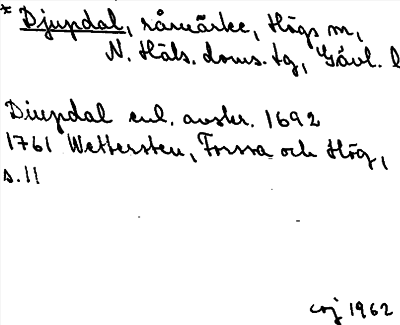 * Djupdal, råmärke, Högs sn,
N. Häls. doms. tg, Gävl. l
Diupdal enl. avskr. 1692
1761 Wettersten, Forssa och Hög,
s. 11
1962